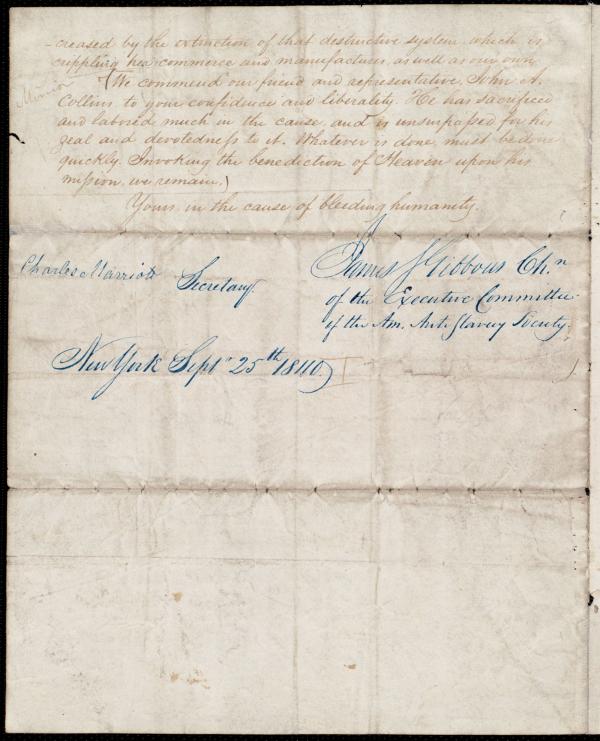 -creased by the extinction of that destructive system which is
crippling her commerce and manufactures, as well as our own.
(We commend our friend and representative, John A.
Collins to your confidence and liberality. He has sacrificed
and labored much in the cause, and is unsurpassed for his
zeal and devotedness to it. Whatever is done, must be done
quickly. Invoking the benediction of Heaven upon his
mission, we remain,)
Yours, in the cause of bleeding humanity.
James S Gibbons Ch.n
Charles Marriott Secretary.
of the Executive Committee
of the Am. Anti Slavery Society.
New York Sept 25th 1840)